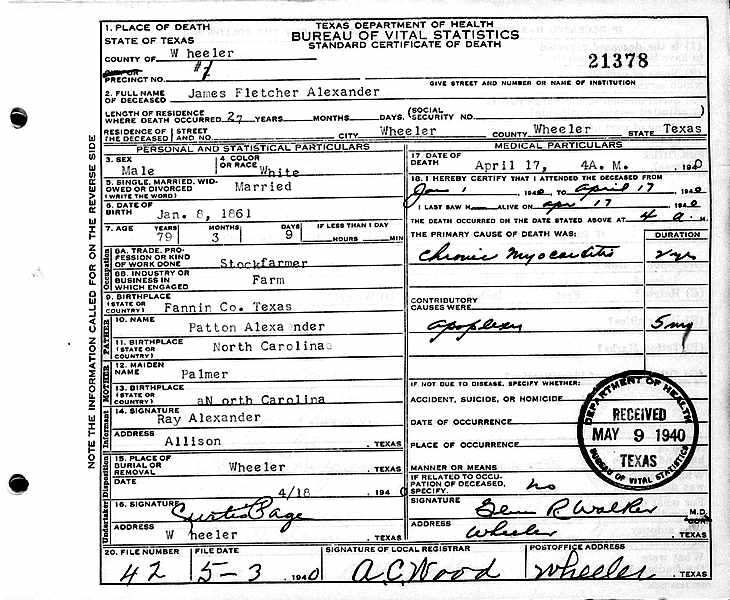 TEXAS DEPARTMENT OF HEALTH
BUREAU OF VITAL STATISTICS
STANDARD CERTIFICATE OF DEATH
21378
1. PLACE OF DEATH
STATE OF TEXAS
COUNTY OF W heeler
PRECINCT NO. #1
GIVE STREET AND NUMBER OR NAME OF INSTITUTION
2. FULL NAME OF DECEASED James Fletcher Alexander
LENGTH OF RESIDENCE WHERE DEATH OCCURRED 27 YEARS MONTHS DAYS. (SOCIAL SECURITY NO. )
RESIDENCE OF THE DECEASED STREET AND NO. CITY Wheeler COUNTY Wheeler STATE Texas
PERSONAL AND STATISTICAL PARTICULARS
3. SEX Male
4. COLOR OR RACE White
5. SINGLE, MARRIED, WIDOWED OR DIVORCED (WRITE THE WORD) Married
6. DATE OF BIRTH Jan. 8, 1861
7. AGE YEARS 79 MONTHS 3 DAYS 9 IF LESS THAN 1 DAY HOURS MIN
Occupation
8A. TRADE, PROFESSION OR KIND OF WORK DONE Stockfarmer
8B. INDUSTRY OR BUSINESS IN WHICH ENGAGED Farm
9. BIRTHPLACE (STATE OR COUNTRY) Fannin Co. Texas
FATHER
10. NAME Patton Alexa nder
11. BIRTHPLACE (STATE OR COUNTRY) North Carolina
MOTHER
12. MAIDEN NAME Palmer
13. BIRTHPLACE (STATE OR COUNTRY) aN orth Carolina
Informant
14. SIGNATURE Ray Alexander
ADDRESS Allison , TEXAS
Disposition
15. PLACE OF BURIAL OR REMOVAL Wheeler , TEXAS
DATE 4/18 194 0
Undertaker
16. SIGNATURE Curtis Page
ADDRESS W heeler , TEXAS
MEDICAL PARTICULARS
17 DATE OF DEATH April 17, 4A. M. , 1940
18. I HEREBY CERTIFY THAT I ATTENDED THE DECEASED FROM
Jan 1 , 1940, TO April 17 , 1940
I LAST SAW H ALIVE ON apr 17 1940
THE DEATH OCCURRED ON THE DATE STATED ABOVE AT 4 a. M.
THE PRIMARY CAUSE OF DEATH WAS: DURATION
Chronic Myocarditis 2 yrs
CONTRIBUTORY CAUSES WERE
apoplexy 5
IF NOT DUE TO DISEASE, SPECIFY WHETHER:
ACCIDENT, SUICIDE, OR HOMICIDE
DATE OF OCCURRENCE
PLACE OF OCCURRENCE
MANNER OR MEANS
IF RELATED TO OCCUPATION OF DECEASED, SPECIFY. no
SIGNATURE Glenn R Walker M.D.
ADDRESS Wheeler , TEXAS
DEPARTMENT OF HEALTH
RECEIVED
MAY 9 1940
TEXAS
BUREAU OF VITAL STATISTICS
20. FILE NUMBER 42
FILE DATE 5-3 1940
SIGNATURE OF LOCAL REGISTRAR A.C. Wood
POSTOFFICE ADDRESS Wheeler , TEXAS
NOTE THE INFORMATION CALLED FOR ON THE REVERSE SIDE